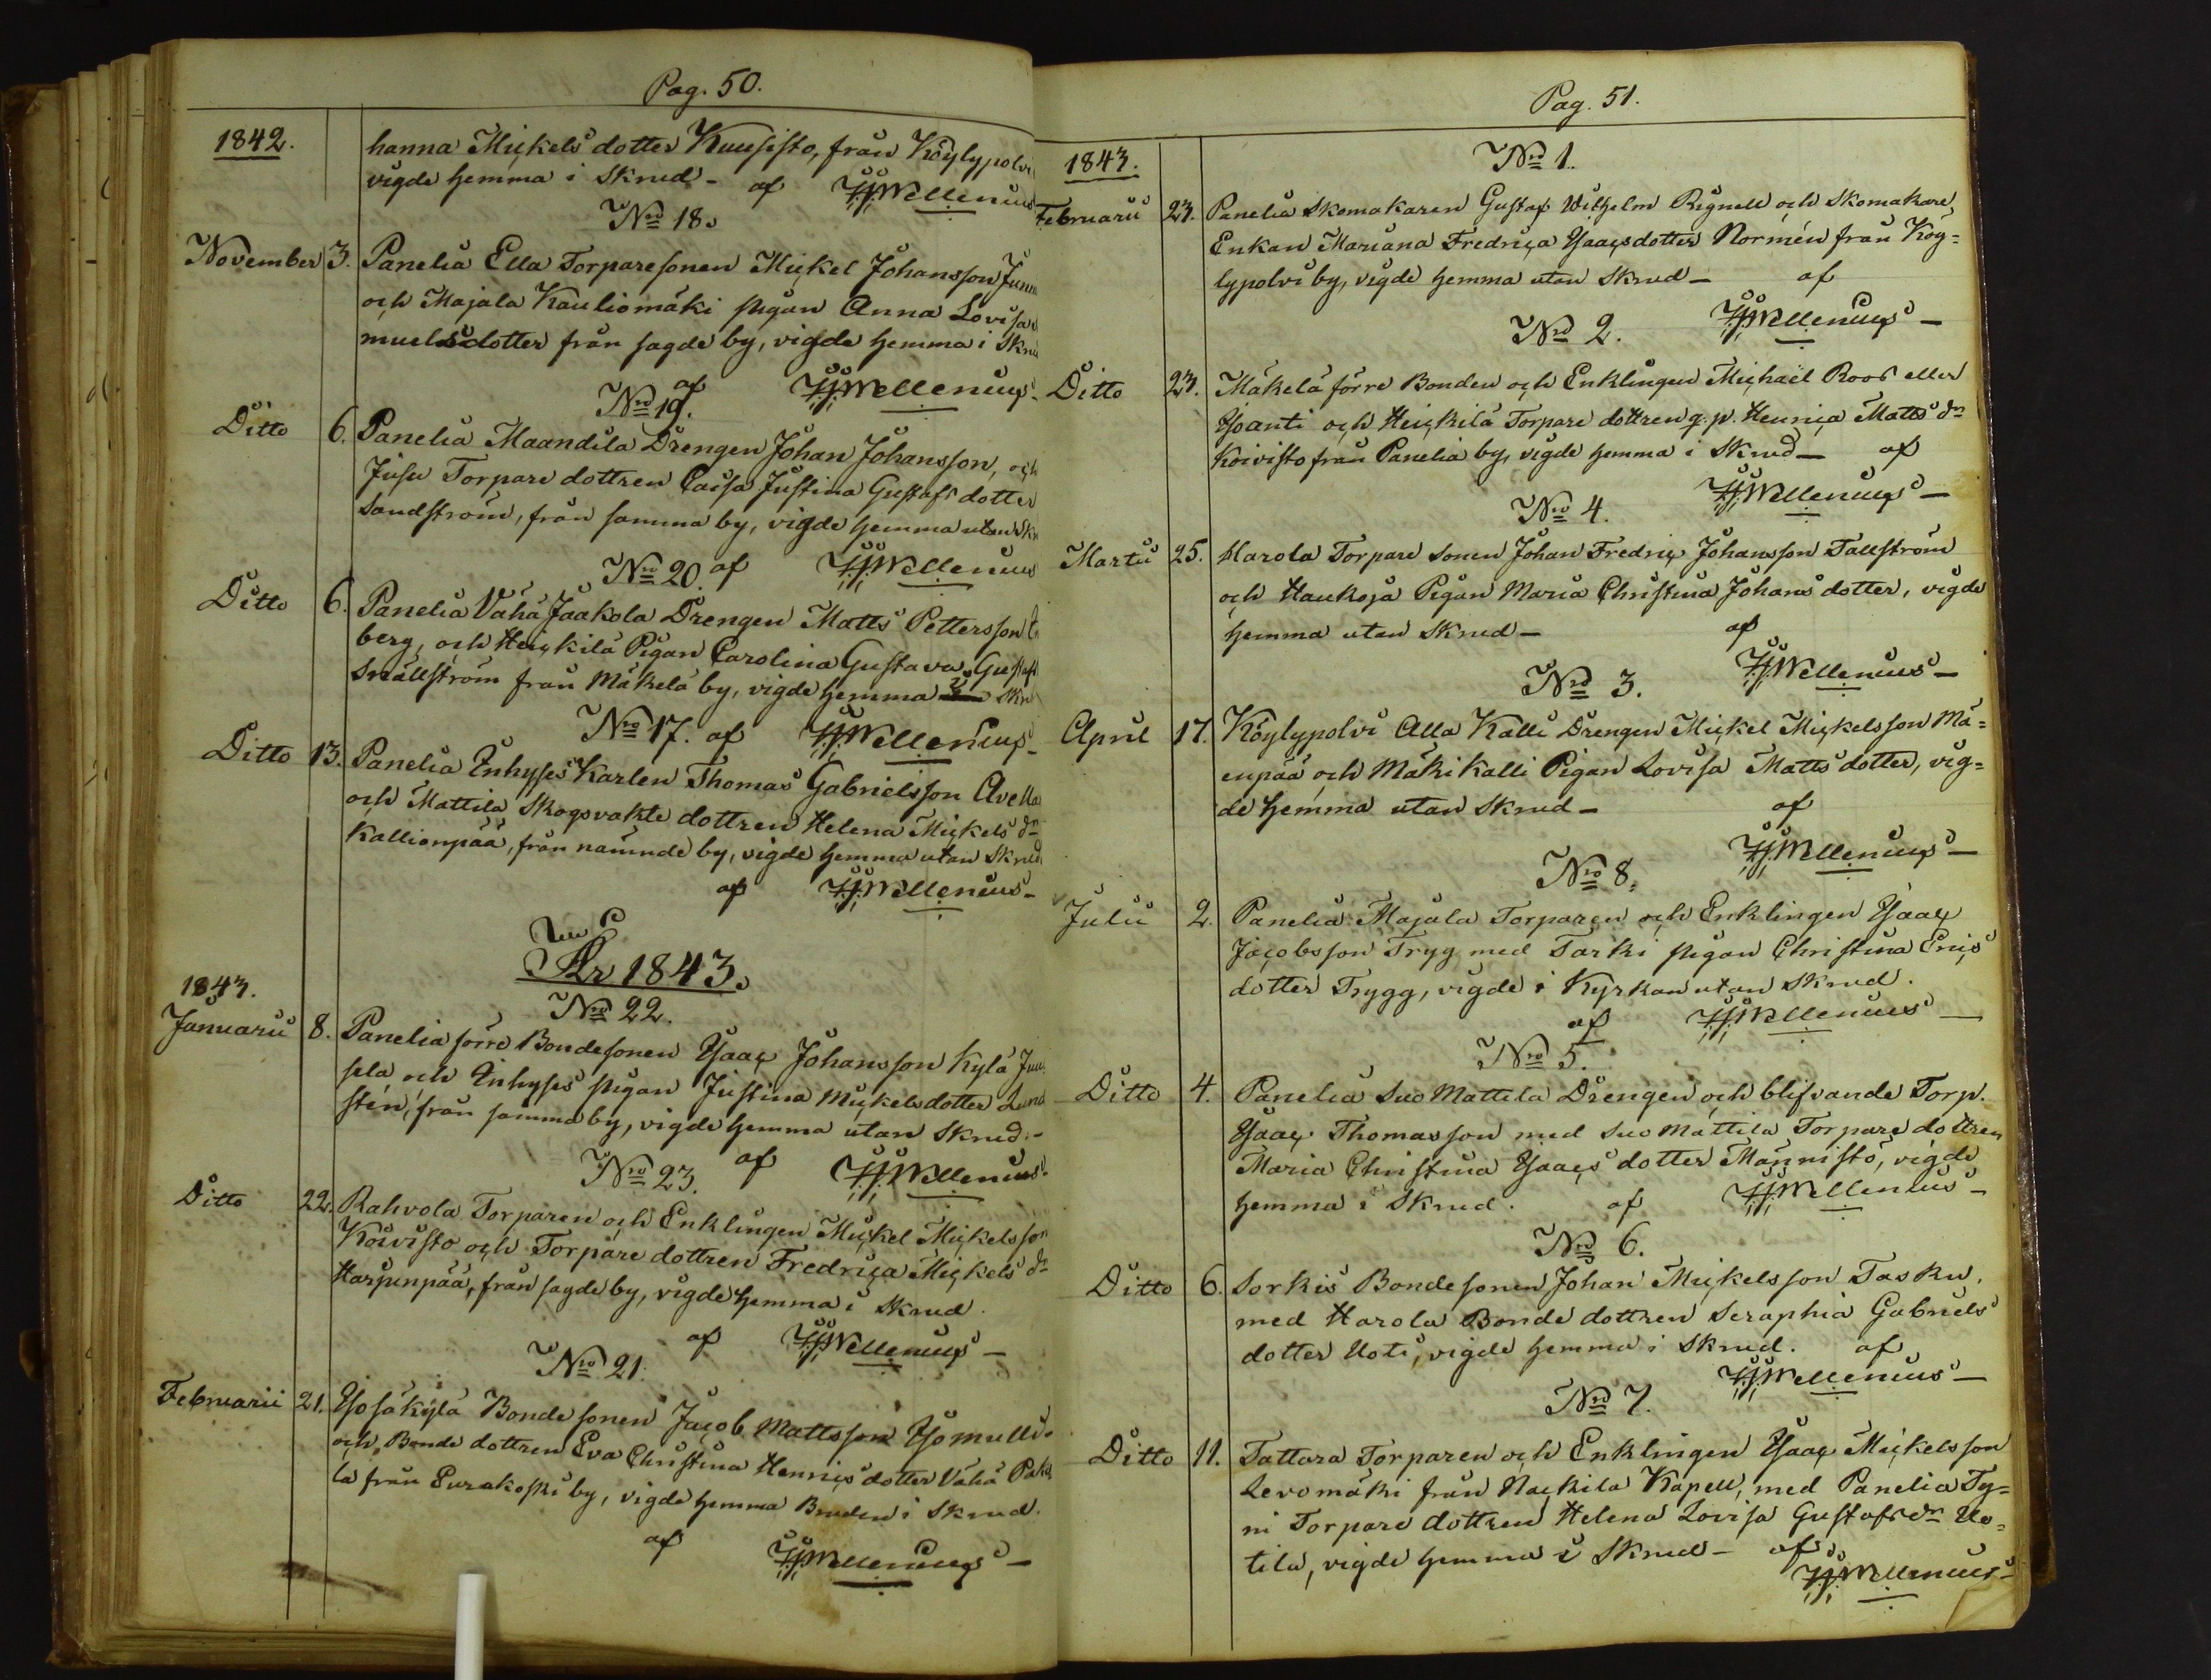 Pag. 50.
1842.
hanna Mickels dotter Kuusisto, från Köylypolvi
vigde hemma i Skrud - af HHWellenius
No 18.
November 3. Panelia Ella Torparesonen Mickel Johansson Juu
och Majala Kauliomäki pigan Anna Lovisa
muelsdotter från sagde by, vigde hemma i Skru
af HHWellenius -
No 19.
Ditto 6. Panelia Maandila Drengen Johan Johansson, och
Jusu Torpare dottren Caisa Justina Gustafs dotter
Sandström, från samma by, vigde hemma utan Sk
af HHWellenius
No 20.
Ditto 6. Panelia Vähä Jaakola Drengen Matts Pettersson
berg, och Heickilä Pigan Carolina Gustava Gustafs
Smällström från Mäkelä by, vigde hemma i Skru
No 17. af HHWellenius -
Ditto 13. Panelia Inhyses Karlen Thomas Gabrielsson Avella
och Mattila Skogsvakte dottren Helena Mickels dr
Kallionpää, från nämnde by, vigde hemma utan Skrud
af HHWellenius -
År 1843.
1843.
No 22.
Januarii 8. Panelia förre Bondesonen Ysaac Johansson Kylä Juu
sela och Inhyses pigan Justina Mickelsdotter Lund
stén, från samma by, vigde hemma utan Skrud. -
No 23. af HHWellenius
Ditto 22. Rahvola Torparen och Enklingen Mickel Mickelsson
Koivisto och Torpare dottren Fredrica Mickels dr
Harjunpää, från sagde by, vigde hemma i Skrud.
af HHWellenius -
No 21.
Februarii 21. Ysosäkylä Bonde sonen Jacob Mattsson Ysomulli
och Bonde dottren Eva Christina Henrics dotter Vähä Pake
la från Eurakoski by, vigde hemma Bruden i Skrud.
af HHWellenius -
Pag. 51.
1843.
No 1.
Februarii 23. Panelia Skomakaren Gustaf Wilhelm Rignell och Skomakare
Enkan Mariana Fredrica Ysaacsdotter Normén från Köy=
lypolvi by, vigde hemma utan Skrud - af
HHWellenius -
No 2.
Ditto 23. Mäkelä förre Bonden och Enklingen Michaël Roos eller
Ysoanti och Heickilä Torpare dottren q. p. Henrica Matts dr
Koivisto från Panelia by, vigde hemma i Skrud - af
HHWellenius -
No 4.
Martii 25. Harola Torpare sonen Johan Fredric Johansson Tallström
och Haukoja Pigan Maria Christina Johans dotter, vigde
hemma utan Skrud - af
HHWellenius -
No 3.
April 17. Köylypolvi Alla Kalli Drengen Mickel Mickelsson Mä=
enpää och Mäki Kalli Pigan Lovisa Matts dotter, vig=
de hemma utan Skrud - af
HHWellenius -
No 8.
Julii 2. Panelia Majala Torparen och Enklingen Ysaac
Jacobsson Tryg med Tarki pigan Christina Erics
dotter Trygg, vigde i Kyrkan utan Skrud.
af HHWellenius -
No 5.
Ditto 4. Panelia Suo Mattila Drengen och blifvande Torp.
Ysaac Thomasson med Suo Mattila Torpare dottren
Maria Christina Ysaacs dotter Männistö, vigde
hemma i Skrud. af HHWellenius -
No 6.
Ditto 6. Sorkis Bonde sonen Johan Mickelsson Tasku,
med Harola Bonde dottren Seraphia Gabriels
dotter Uoti, vigde hemma i Skrud. af
HHWellenius -
No 7.
Ditto 11. Tattara Torparen och Enklingen Ysaac Mickelsson
Levomäki från Nackila Kapell, med Panelia Ty=
ni Torpare dottren Helena Lovisa Gustafs dr Uo=
tila, vigde hemma i Skrud - af
HHWellenius -